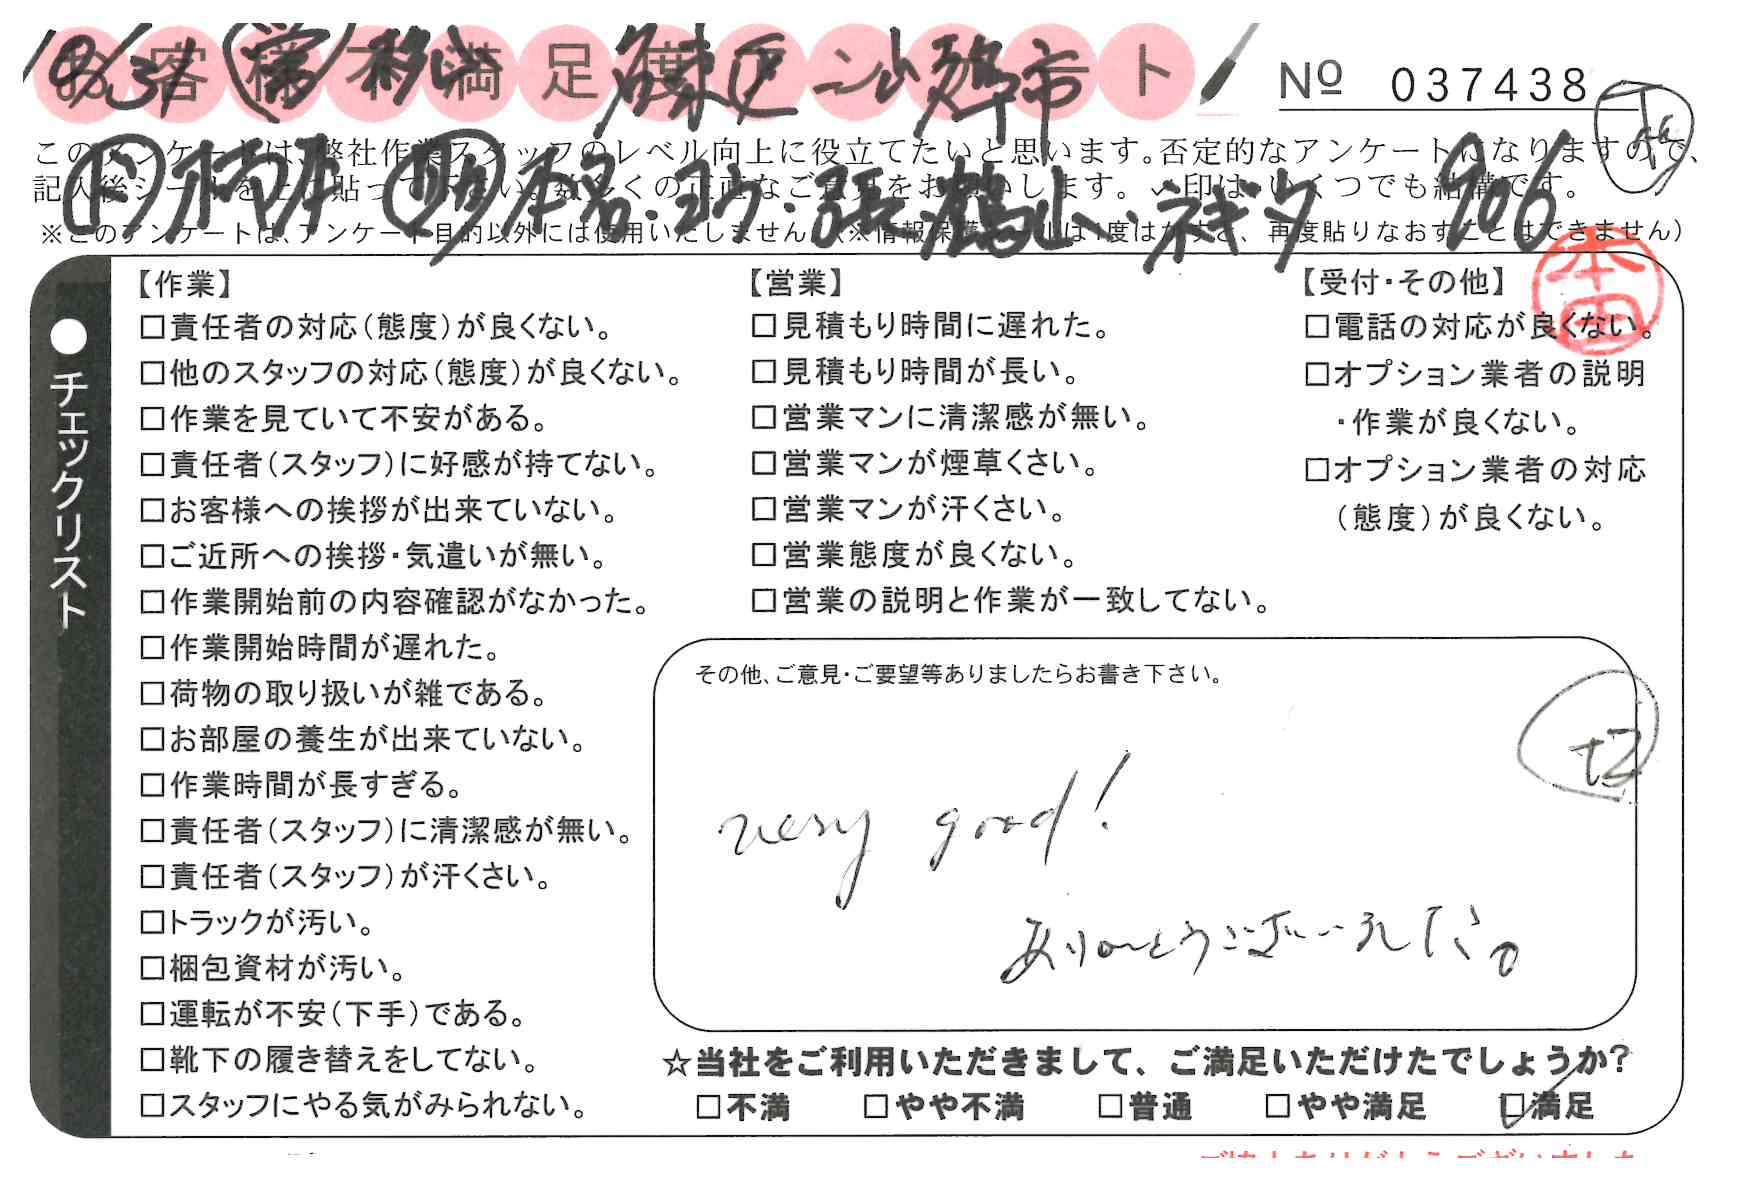 お客様不満足度アンケート
10/31 営 秋山
№ 037438
このアンケートは、弊社作業スタッフのレベル向上に役立てたいと思います。否定的なアンケートになりますので、
記入後シールを上に貼って下さい。数多くの正直なご意見をお願いします。レ印は、いくつでも結構です。
※このアンケートは、アンケート目的以外には使用いたしません。(※情報保護シールは1度はがすと、再度貼りなおすことはできません)
906
本田
●チェックリスト
【作業】
□責任者の対応(態度)が良くない。
□他のスタッフの対応(態度)が良くない。
□作業を見ていて不安がある。
□責任者(スタッフ)に好感が持てない。
□お客様への挨拶が出来ていない。
□ご近所への挨拶・気遣いが無い。
□作業開始前の内容確認がなかった。
□作業開始時間が遅れた。
□荷物の取り扱いが雑である。
□お部屋の養生が出来ていない。
□作業時間が長すぎる。
□責任者(スタッフ)に清潔感が無い。
□責任者(スタッフ)が汗くさい。
□トラックが汚い。
□梱包資材が汚い。
□運転が不安(下手)である。
□靴下の履き替えをしてない。
□スタッフにやる気がみられない。
【営業】
□見積もり時間に遅れた。
□見積もり時間が長い。
□営業マンに清潔感が無い。
□営業マンが煙草くさい。
□営業マンが汗くさい。
□営業態度が良くない。
□営業の説明と作業が一致してない。
【受付・その他】
□電話の対応が良くない。
□オプション業者の説明
・作業が良くない。
□オプション業者の対応
(態度)が良くない。
その他、ご意見・ご要望等ありましたらお書き下さい。
very good!
ありがとうございました。
☆当社をご利用いただきまして、ご満足いただけたでしょうか?
□不満 □やや不満 □普通 □やや満足 ☑満足